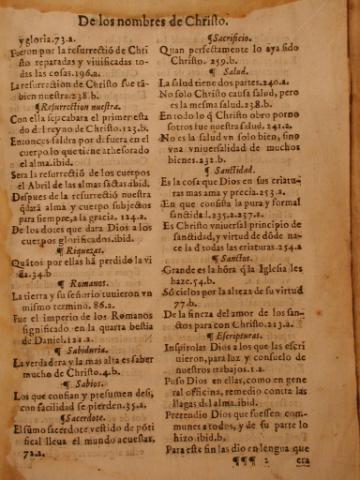 De los nombres de Christo.
y gloria. 73.a.
Fueron por la resurrectiõ de Chri
sto reparadas y viuificadas to-
das las cosas. 196.a.
La resurrection de Christo fue tã-
bien nuestra. 238.b.
¶ Resurrection nuestra.
Con ella se acabara el primer esta
do d̃l reyno de Christo. 123.b.
Entonces saldra por defuera en el
cuerpo lo que tiene athesorado
el alma. ibid.
Sera la resurrectiõ de los cuerpos
el Abril de las almas sactas. ibid.
Despues de la resurrectiõ nuestra
q̃dará alma y cuerpo subjectos
para siempre, a la gracia. 124.a.
De los dotes que dara Dios a los
cuerpos glorificados. ibid.
¶ Riquezas.
Quãtos por ellas hã perdido la vi
da. 34.b
¶ Romanos.
La tierra y su señorio tuuieron vn
mismo termino. 86.a.
Fue el imperio de los Romanos
significado en la quarta bestia
de Daniel. 121.a.
¶ Sabiduria.
La verdadera y la mas alta es saber
mucho de Christo. 4.b.
¶ Sabios.
Los que confian y presumen desi,
con facilidad se pierden. 35.a.
¶ Sacerdote.
El sumo sacerdote vestido de põti
fical lleua el mundo acuestas.
72.a.
¶ Sacrificio.
Quan perfectamente lo aya sido
Christo. 259.b.
¶ Salud.
La salud tiene dos partes. 240.a.
No solo Christo causa salud, pero
es la mesma salud. 238.b.
En todo lo q̃ Christo obro por no
sotros fue nuestra salud. 241.a.
No es la salud vn solo bien, sino
vna vniuersalidad de muchos
bienes. 232.b.
¶ Sanctidad.
Es la cosa que Dios en sus criatu-
ras mas ama y precia. 253.a.
En que consista la pura y formal
sanctidad. 235.a. 237.a.
Es Christo vniuersal principio de
sanctidad, y virtud de dõde na-
ce la d̃ todas las criaturas. 254.a
¶ Sanctos.
Grande es la hõra q̃ la Iglesia les
haze. 54.b.
Sõ cielos por la alteza de su virtud
77.b.
De la fineza del amor de los san-
ctos para con Christo. 213.a.
¶ Escripturas.
Inspirolas Dios a los que las escri
uieron, para luz y consuelo de
nuestros trabajos. 1.a.
Puso Dios en ellas, como en gene
ral officina, remedio contra las
llagas del alma. ibid.
Pretendio Dios que fuessen com-
munes a todos, y de su parte lo
hizo. ibid.b.
Para este fin las dio en lengua que
¶¶¶ 2 era